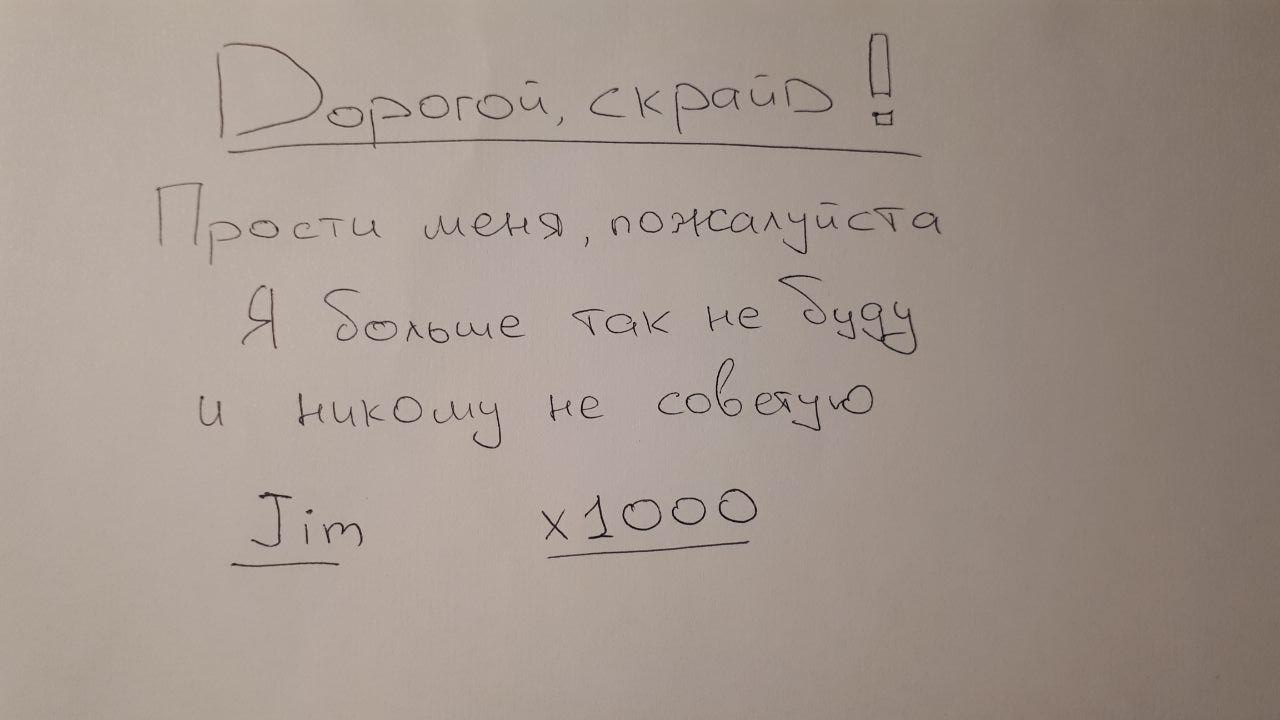 Дорогой, скрайд!
Прости меня, пожалуйста
Я больше так не буду
и никому не советую
Jim x1000